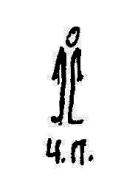 ч.п.